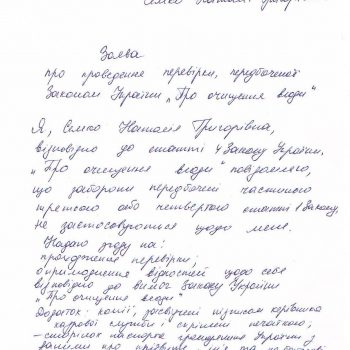 Заява
про проведення перевірки, передбаченої
Законом України „Про очищення влади"
Я, Семко Наталія Григорівна,
відповідно до статті 4 Закону України
„Про очищення влади" повідомляю,
що заборони передбачені частиною
третьою або четвертою статті 1 Закону,
не застосовуються щодо мене.
Надаю згоду на:
проходження перевірки;
оприлюднення відомостей щодо себе
відповідно до вимог Закону України
„Про очищення влади"
Додаток: копії, засвідчені підписом керівника
кадрової служби і скріплені печаткою:
– сторінок паспорта громадянина України з
даними про прізвище, ім'я та по батькові